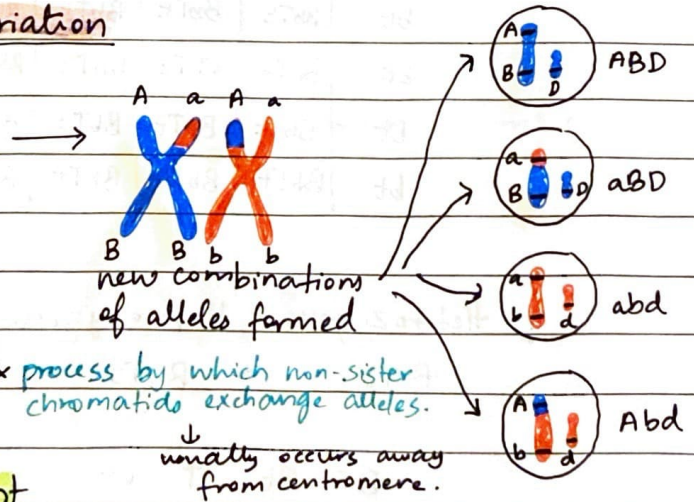 riation
A a A a
B B b b
new combinations
of alleles formed
* process by which non-sister
chromatids exchange alleles.
↓
usually occurs away
from centromere.
A
B D
ABD
a
B D
aBD
a
b d
abd
A
b d
Abd